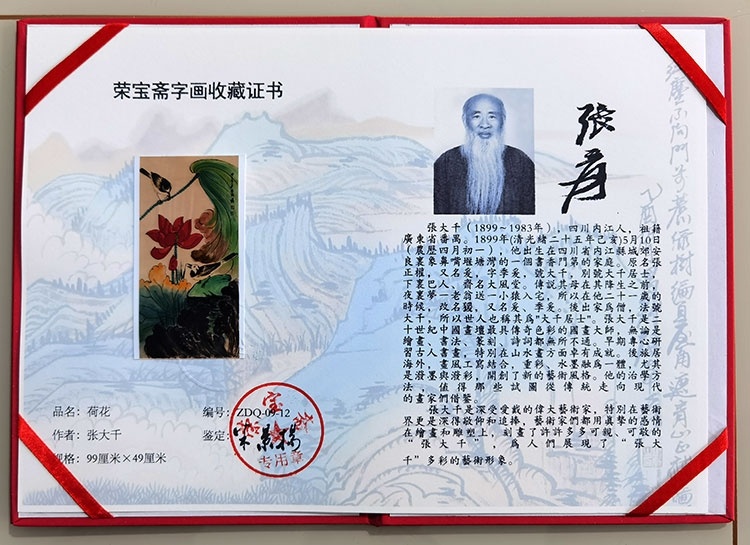 荣宝斋字画收藏证书
品名：荷花
编号：ZDQ-09-12
作者：张大千
鉴定：
规格：99厘米×49厘米
宝
专用章
張爰
張大千（1899~1983年），四川内江人，祖籍
廣東省番禺。1899年(清光緒二十五年己亥)5月10日
（農歷四月初一），他出生在四川省内江縣城郊安
良裏象鼻嘴堰塘灣的一個書香門第的家庭。原名張
正權，又名爰，字季爰，號大千，别號大千居士，
下裏巴人，齋名大風堂。傳説其母在其降生之前，
夜裏夢一老翁送一小猿入宅，所以在他二十一歲的
時候，改名猨，又名爰、季爰。後出家爲僧，法號
大千，所以世人也稱其爲"大千居士"。張大千是二
十世紀中國畫壇最具傳奇色彩的國畫大師，無論是
繪畫、書法、篆刻、詩詞都無所不通。早期專心研
習古人書畫，特别在山水畫方面卓有成就。後旅居
海外，畫風工寫結合，重彩、水墨融爲一體，尤其
是潑墨與潑彩，開創了新的藝術風格。他的治學方
法，值得那些試圖從傳統走向現代
的畫家們借鑒。
張大千是深受愛戴的偉大藝術家，特别在藝術
界更是深得敬仰和追捧，藝術家們都用真摯的感情
在繪畫和雕塑上，刻畫了許許多多可親、可敬的
"張大千"，爲人們展現了"張大
千"多彩的藝術形象。